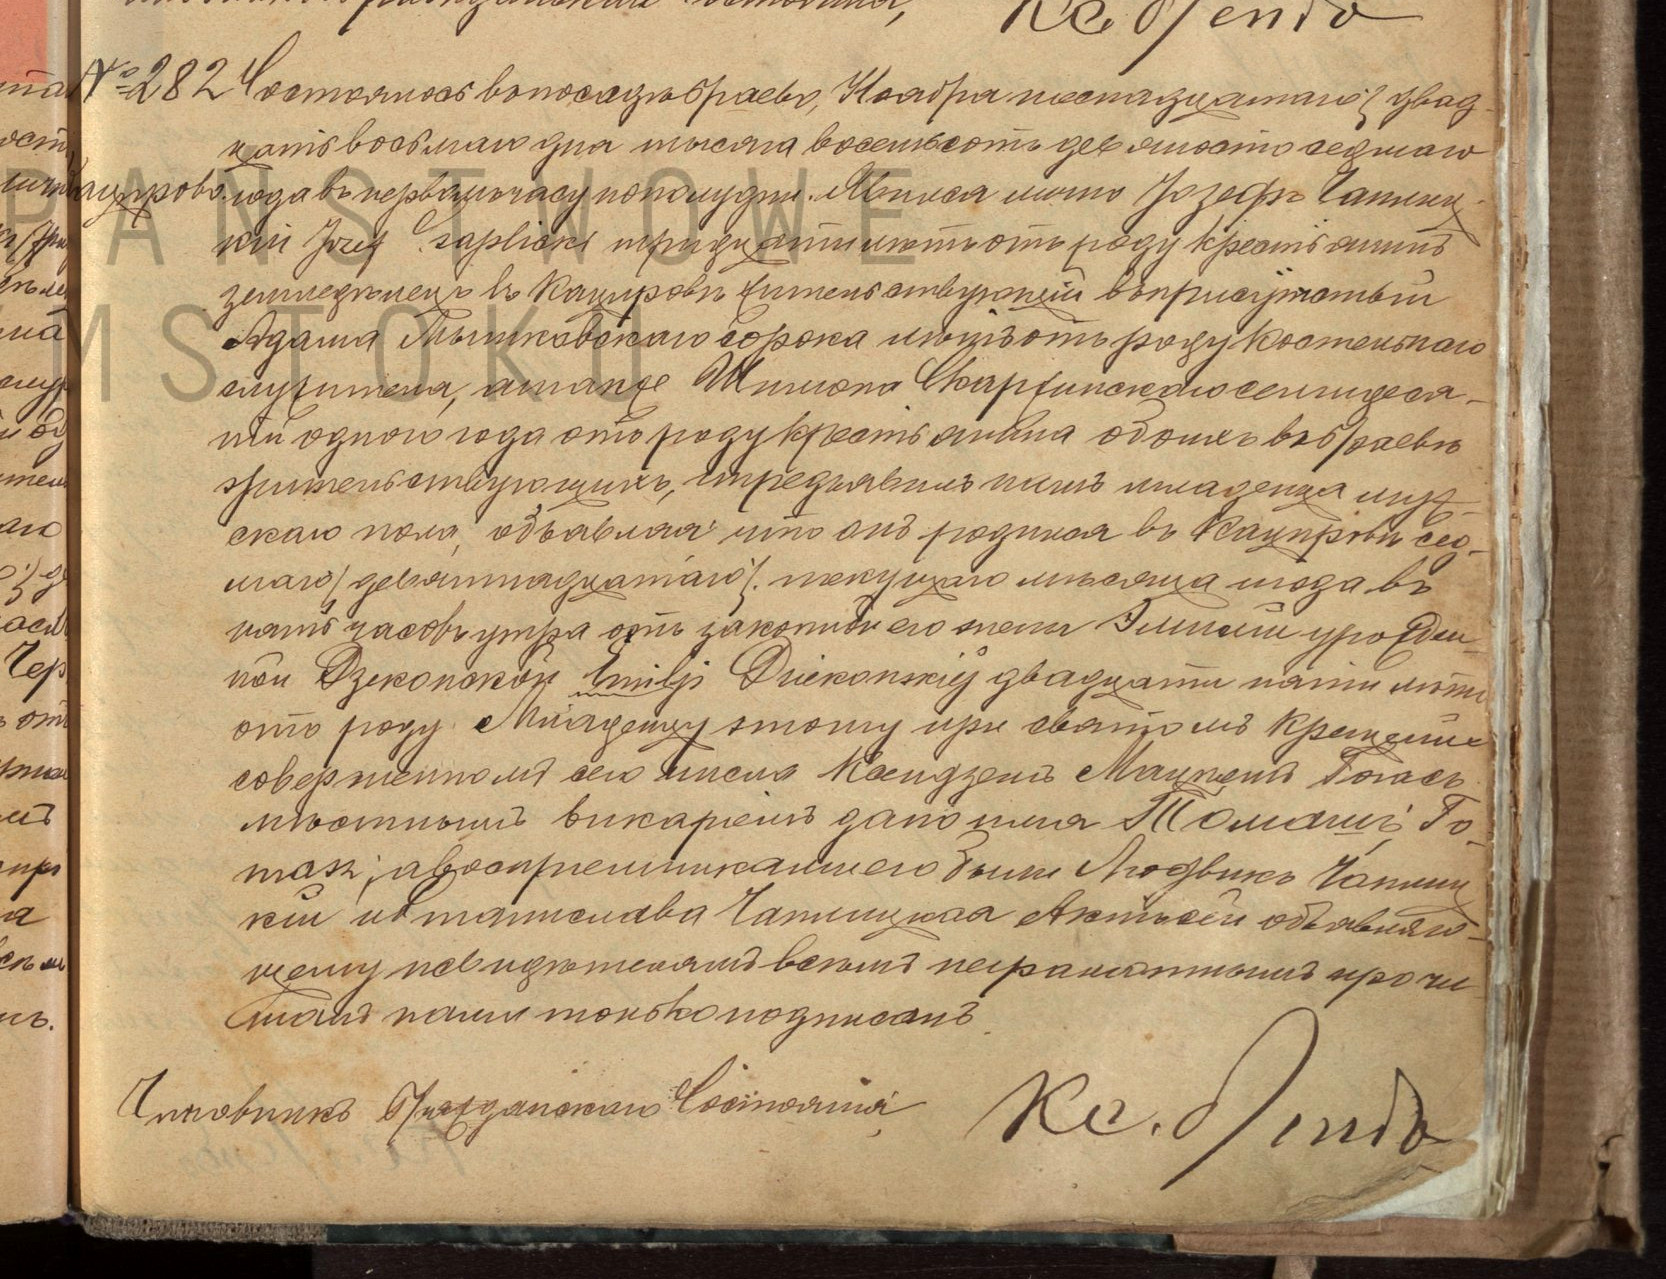 Кс. Бендо
№ 282 Состоялось въ посадѣ Граево, Ноября шестнадцатаго/двад-
цать восьмаго дня тысяча восемьсотъ девяносто седмаго
года въ первомъ часу пополудни. Явился лично Іозефъ Чаплиц-
кій Józef Czaplicki тридцати лѣтъ отъ роду крестьянинъ
земледѣлецъ въ Кацпровѣ жительствующій въ присутствіи
Адама Мышковскаго сорока лѣтъ отъ роду костельнаго
служителя, а также Шимона Скаржинскаго семидеся-
ти одного года отъ роду крестьянина обоихъ въ Граевѣ
жительствующихъ, и предъявилъ намъ младенца муж-
скаго пола, объявляя что онъ родился въ Кацпровѣ сед-
маго/девятнадцатаго/ текущаго мѣсяца и года въ
пять часовъ утра отъ законной его жены Эмиліи урожден-
ной Дзеконской Emilji Dziekonskiej двадцати пяти лѣтъ
отъ роду. Младенцу этому при святомъ крещеніи
совершенномъ сего числа Ксендзомъ
мѣстнымъ викаріемъ дано имя Томашъ, To-
masz; а воспріемниками его были Людвикъ Чаплиц
кій и Станислава Чаплицкая Актъ сей объявляю-
щему и свидѣтелямъ всѣмъ неграмотнымъ прочи
танъ нами только подписанъ.
Чиновникъ Гражданскаго Состоянія, Кс. Бендо
PAŃSTWOWE
MSTOKU